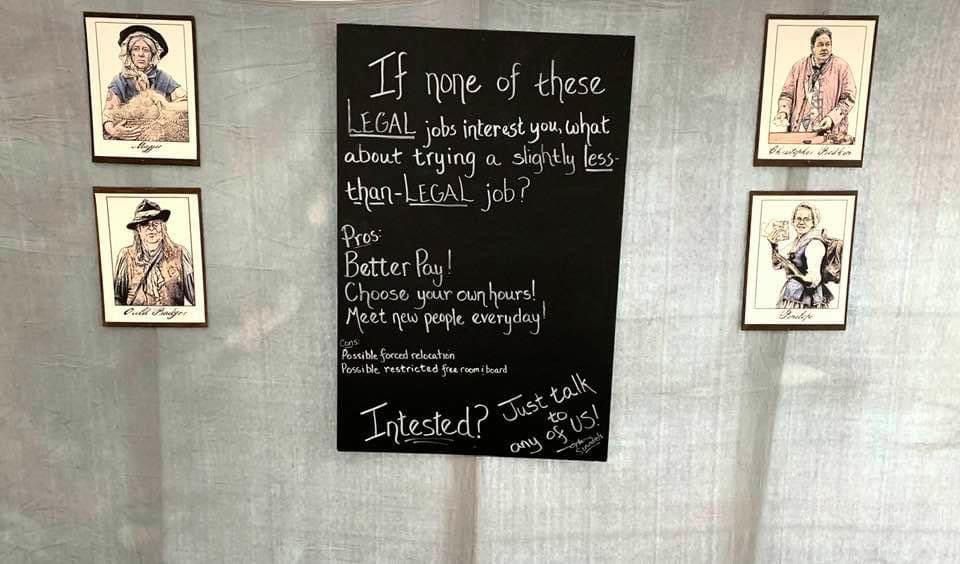 If none of these
LEGAL jobs interest you, what
about trying a slightly less-
than-LEGAL job?
Pros:
Better Pay!
Choose your own hours!
Meet new people everyday!
Cons:
Possible forced relocation
Possible restricted free room & board
Intested?
Just talk
to
any of US!
Maggie
Ould Badger